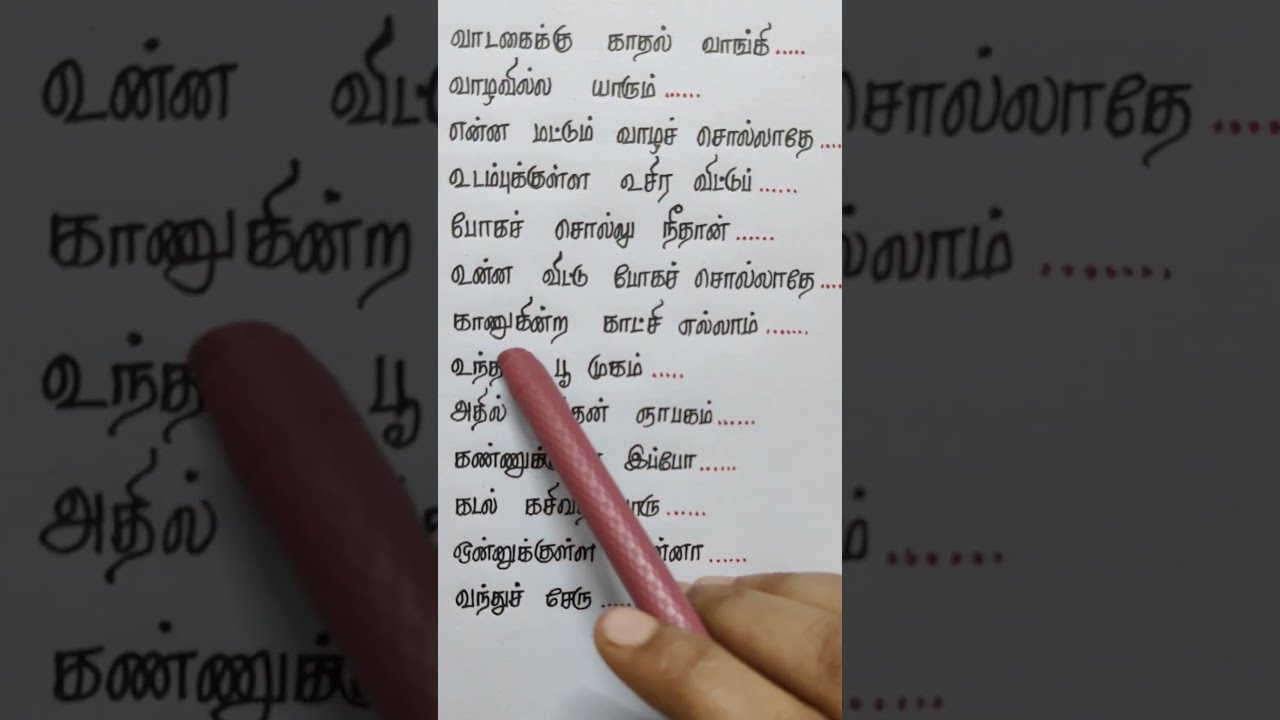 வாடகைக்கு காதல் வாங்கி.....
வாழவில்ல யாரும்......
என்ன மட்டும் வாழச் சொல்லாதே....
உடம்புக்குள்ள உசிர விட்டுப்......
போகச் சொல்லு நீதான்......
உன்ன விட்டு போகச் சொல்லாதே....
காணுகின்ற காட்சி எல்லாம்.......
பூ முகம்.....
அதில் ஞாபகம்......
இப்போ......
கடல்
ஒன்னுக்குள்ள
வந்துச் சேரு.....